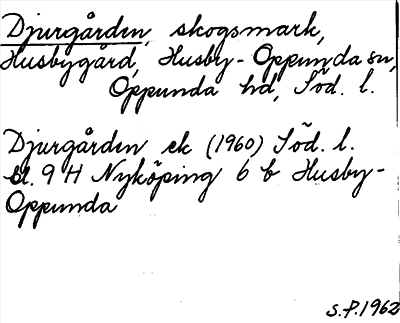 Djurgården, skogsmark,
Husbygård, Husby-Oppunda sn,
Oppunda hd, Söd. l.
Djurgården ek (1960) Söd. l.
bl. 9 H Nyköping 6 b Husby-
Oppunda
S.P. 1962